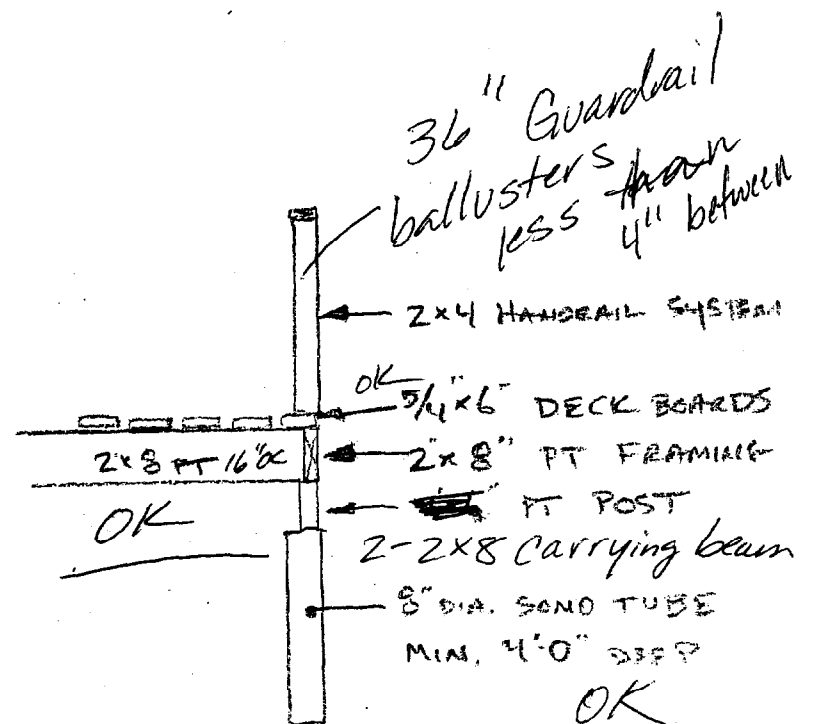 36" Guardrail
ballusters
less than
4" between
2x4 HANDRAIL SYSTEM
OK
5/4"x6" DECK BOARDS
2x8 PT 16"OC
2"x8" PT FRAMING
" PT POST
OK
2-2x8 Carrying beam
8" DIA. SONO TUBE
MIN. 4'-0" DEEP
OK